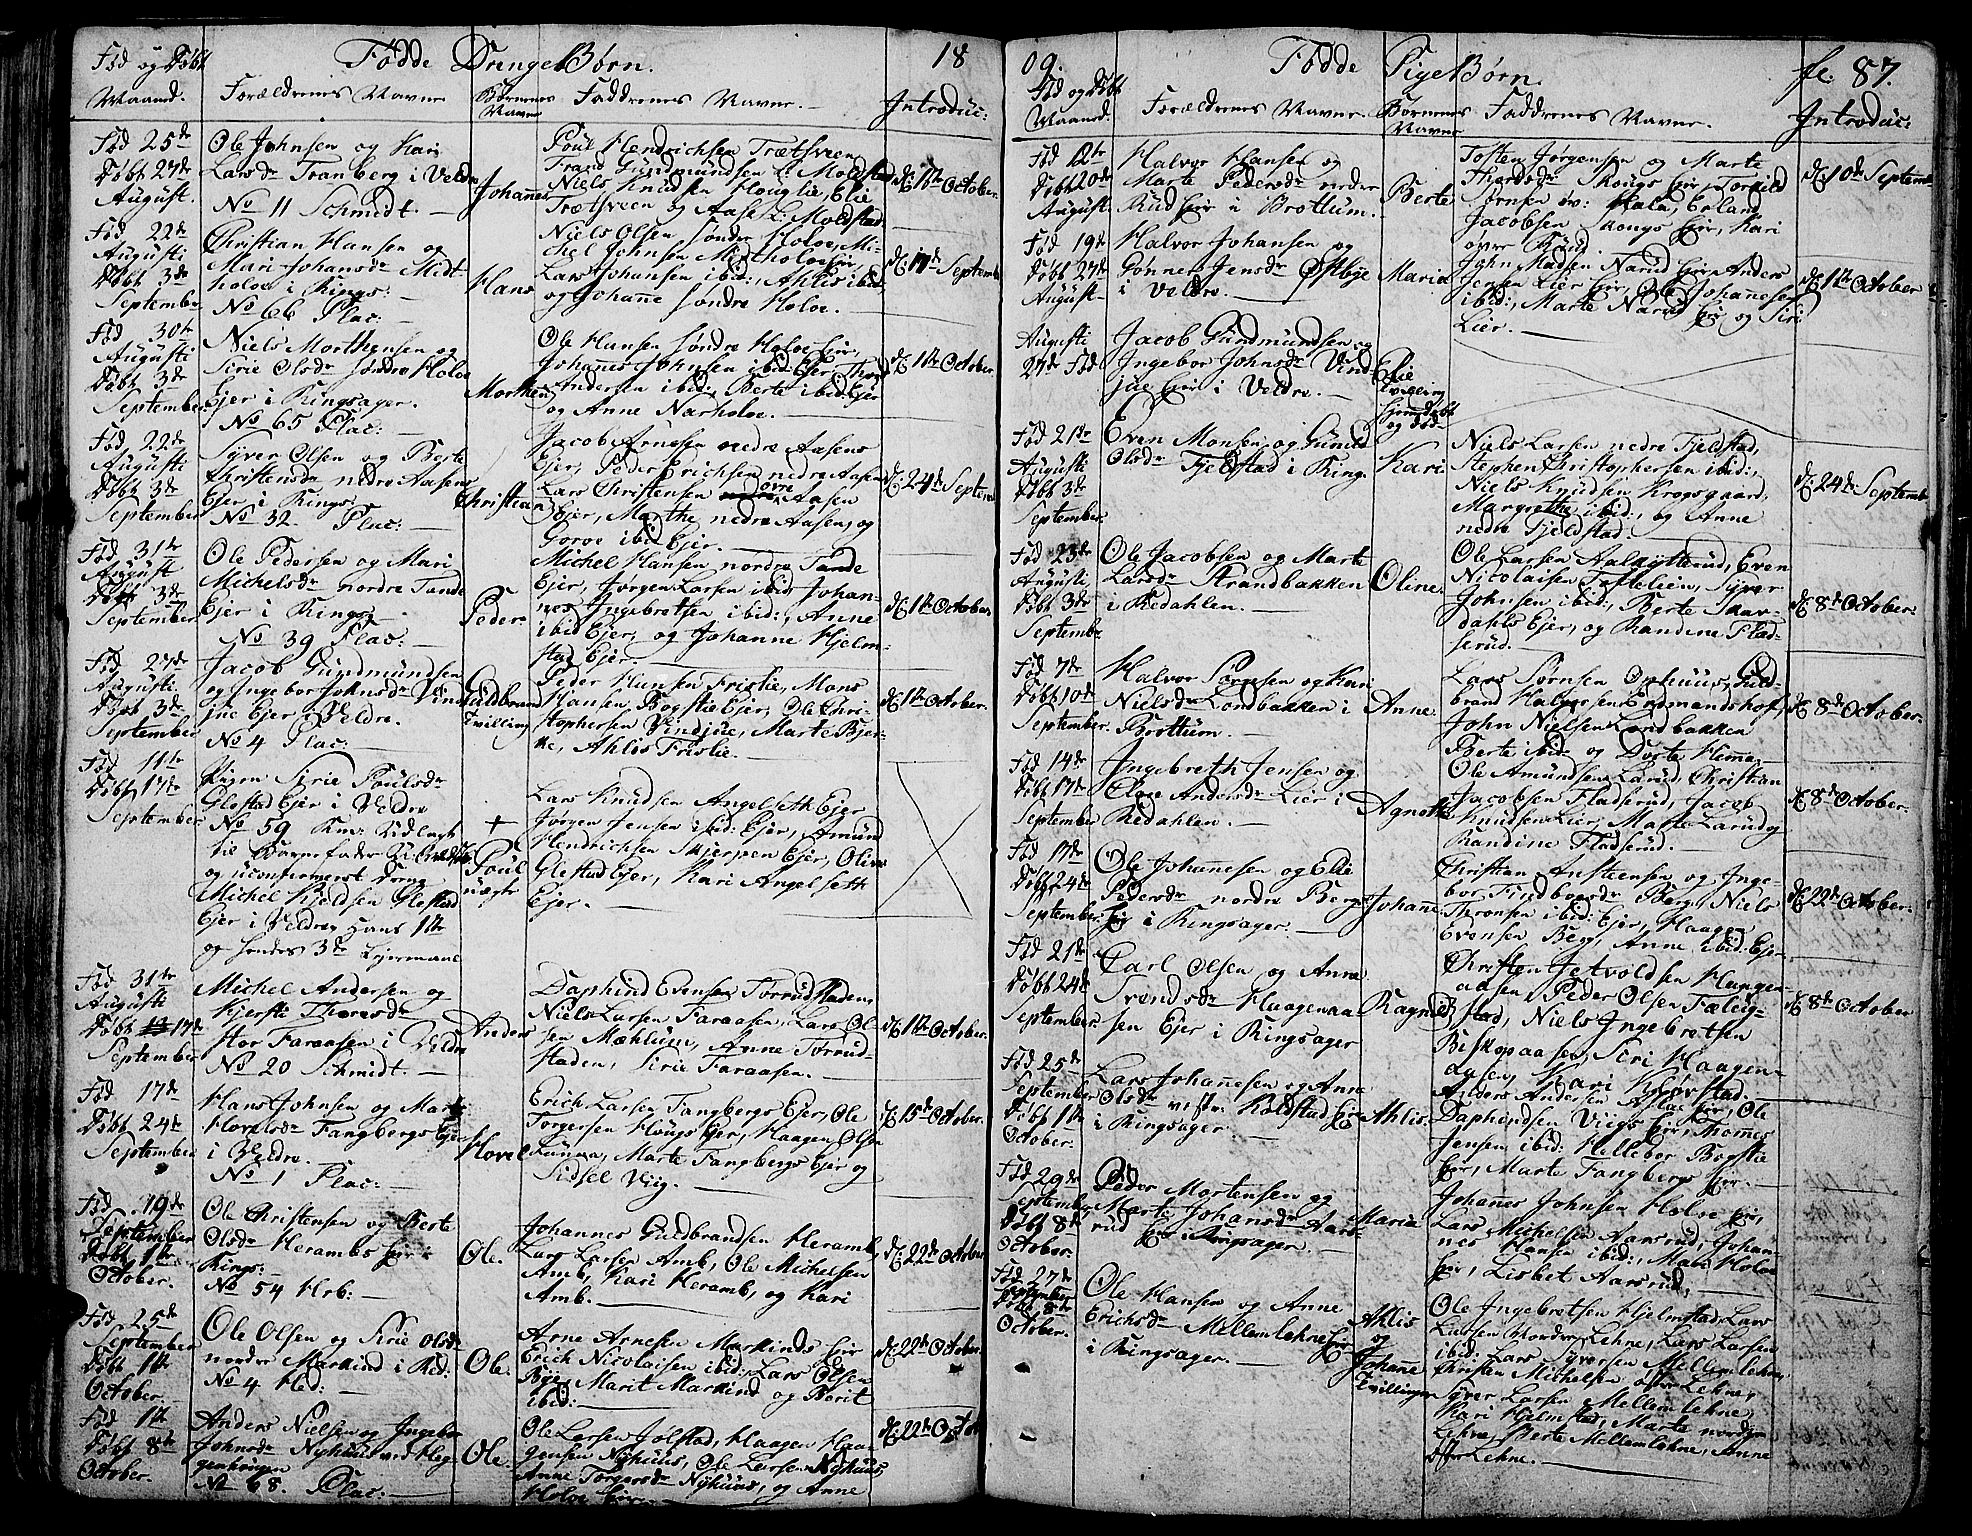 Fød og Døbt
Maaned.
Fødde Drenge Børn.
18
Forældrenes Navne
Børnenes Navne
Faddrenes Navne.
Introduc:
Fød 25de
Døbt 27de
August.
Ole Johnsen og Kari
Larsdr Tranberg i Veldre
No 11 Schmidt.
Johannes
Poul Hendrichsen Trætsveen
Frans Gundmundsen L. Molstad
Niels Knudsen Houglie, Elie
Trætsveen og Aase L. Molstad
d: 1te October.
Fød 22de
Augusti
Døbt 3de
September
Christian Hansen og
Mari Johansdr Midt-
holoe i Rings:
No 66 Plac:
Hans
Niels Olsen søndre Holoe, Mi-
chel Johnsen Midtholoe Ejer,
Lars Johansen ibid:, Ahlis ibid,
og Johanne søndre Holoe.
d: 17de Septemb
Fød 30te
Augusti
Døbt 3de
September
Niels Morthensen og
Sirie Olsdr søndre Holoe
Ejer i Ringsager.
No 65 Plac:
Morthen
Ole Hansen søndre Holoe Ejer,
Johannes Johnsen ibid: Ejer
Andersen ibid:, Berte ibid: Ejer
og Anne Narholoe.
d: 1te October.
Fød 22de
Augusti
Døbt 3de
September
Syver Olsen og Berte
Christensdr nedre Aasens
Ejer i Rings:
No 32. Plac:
Christian
Jacob Arnesen nedre Aasens
Ejer, Peder Erichsen nedre Aasen
Lars Christensen øvre Aasen
Ejer, Marthe nedre Aasen, og
Goroe ibid: Ejer.
d: 24de Septem
Fød 31te
Augusti
Døbt 3de
September
Ole Pedersen og Mari
Michelsdr nordre Tande
Ejer i Rings:
No 39 Plac:
Peder
Michel Hansen nordre Tande
Ejer, Jørgen Larsen ibid Johan-
nes Ingebretsen ibid:, Anne
ibid Ejer, og Johanne Hjelm-
stad Ejer.
d: 1te October.
Fød 27de
Augusti
Døbt 3de
September
Jacob Gundmundsen
og Ingebor Johnsdr Vind
jue Ejer i Veldre.
No 4 Plac:
Guldbrand
Tvilling
Peder Hansen Fristie, Mons
Hansen Bogstie Ejer, Ole Chri-
stophersen Vindjue, Marte Bjer-
ke, Ahlis Fristie.
d: 1te October.
Fød 11te
Døbt 17de
September
Pigen Sirie Poulsdr
Glestad Ejer i Veldre
No 59
til Barnefader
og uconfirmeret Dreng
Michel Kjeldsen Glestad
Ejer i Veldre hans 1te
og hendes 3de Lejermaal
+
Poul
uægte
Lars Knudsen Angelseth Ejer
Jørgen Jensen ibid: Ejer, Amund
Hendrichsen Skjerpen Ejer, Olive
Glestad Ejer, Kari Angelseth
Ejer.
Fød 31te
Augusti
Døbt 17de
September
Michel Andersen og
Kjersti Thoresdr
Stor Faraasen i Veldre
No 20 Schmidt.
Anders
Daphind Evensen Torrudstaden
Niels Larsen Faraasen, Lars Ol-
sen Mæhlum, Anne Torrud-
staden, Sirie Faraasen.
d: 1te October.
Fød 17de
Døbt 24de
September
Hans Johnsen og Mari
Hovelsdr Fangbergs Ejer
i Veldre.
No 1 Plac:
Hovel
Erich Larsen Fangbergs Ejer, Ole
Torgersen Hougs Ejer, Haagen Olsen
Marte Fangbergs Ejer og
Sidsel Viig.
d: 15de October.
Fød 19de
September
Døbt 1te
October.
Ole Christensen og Berte
Olsdr Herambs Ejer i
Rings:
No 54 Hrb:
Ole.
Johannes Guldbrandsen Heramb,
Lars Larsen Amb, Ole Michelsen
Amb, Kari Heramb, og Kari
Amb.
d: 22de October
Fød 25de
September
Døbt 1te
October.
Ole Olsen og Sirie Olsdr
nordre Markind i Red:
No 4 Hed:
Ole.
Arne Arnesen Markinds Ejer
Erich Nicolaisen ibid:, Lars Olsen
Bye, Marit Markind og Berit
ibid:
d: 22de October.
Fød 1te
Døbt 8de
October.
Anders Nielsen og Ingebor
Johnsdr Nyhuus ved Hag-
No 68. Plac:
Ole.
Ole Larsen Jølstad, Haagen Haa-
gensen Nyhuus, Ole Larsen Nyhuus,
Anne Torgersdr Nyhuus, og Anne
Holoe Ejer.
d: 22de Octob
09.
Fødde Pige Børn.
fl. 87.
Fød og Døbt
Maaned.
Forældrenes Navne.
Børnenes Navne
Faddrenes Navne.
Introduc:
Fød 12te
Døbt 20de
August.
Halvor Hansen og
Marte Pedersdr nedre
Rud Ejer i Brøttum.
Berte
Tosten Jørgensen og Marte
Thordsdr Skougs Ejer, Torkild
Sørnsen øv: Hala, Erland
Jacobsen Skougs Ejer, Kari
over Ruud.
d: 10de Septemb
Fød 19de
Døbt 27de
August.
Halvor Johansen og
Gønner Jensdr Østbye
i Veldre.
Maria
John Madsen Narud Ejer, Anders
Jensen Lier Ejer, Ole Johannesen
ibid:, Marte Narud Ejer og Siri
Lier.
d: 1te October
Augusti
27de Fød
Jacob Gundmundsen og
Ingebor Johnsdr Vind
jue Ejer i Veldre.
Elie
Tvilling
hjemdøbt
og død
Fød 21de
Augusti
Døbt 3de
September.
Even Monsen og Gunild
Olsdr Fjeldstad i Ring:
Kari
Niels Larsen nedre Fjeldstad,
Stephen Christophersen ibid:,
Niels Knudsen Krogsgaard,
Margrethe ibid:, og Anne
nedre Fjeldstad.
d: 24de Septemb
Fød 23de
Augusti
Døbt 3de
Septembr
Ole Jacobsen og Marte
Larsdr Strandbakken
i Redahlen.
Oline.
Ole Larsen Aalkytterud, Even
Nicolaisen Toftelien, Syver
Johnsen ibid:, Berte Skav-
dahls Ejer, og Randine Flad-
serud.
d: 8de October.
Fød 7de
Døbt 10de
September
Halvor Sørnsen og Kari
Nielsdr Londbakken i
Brøttum.
Anne
Lars Sørnsen Ophuus, Guld-
brand Halvorsen Endmandshof,
John Nielsen Londbakken
Berte ibid: og Dorte Hemma.
d: 8de October.
Fød 14de
Døbt 17de
September
Ingebreth Jensen og
Eloe Andersdr Lier i
Redahlen.
Agnethe
Ole Amundsen Larud, Christian
Jacobsen Fladserud, Jacob
Knudsen Lier, Marte Larud og
Randine Fladserud.
d: 8de October.
Fød 17de
Døbt 24de
September
Ole Johannesen og Elie
Pedersdr nordre Bergs
Ejer i Ringsager.
Johanne
Christian Anstensen og Inge-
bor Findborsdr Berg, Niels
Thronsen ibid: Ejer, Haagen
Evensen Berg, Anne ibid: Ejer.
d: 22de October.
Fød 21de
Døbt 24de
September
Carl Olsen og Anne
Svendsdr Haagenaa
sen Ejer i Ringsager
Ragnild
Christen Jetvoldsen Haagen-
aasen, Peder Olsen Fælug-
stad, Niels Ingebretsen
Biskopaasen, Siri Haagen-
aasen, Kari Kløvstad.
d: 8de October
Fød 25de
September
Døbt 1te
October.
Lars Johannesen og Anne
Olsdr vestre Kolstad Ejer
i Ringsager.
Ahlis.
Anders Andersen Aslae Ejer, Ole
Daphindsen Viigs Ejer, Thomes
Jensen ibid: Hellebor Bogstie
Ejer, Marte Fangbergs Ejer.
Fød 29de
September
Døbt 8de
October.
Peder Mortensen og
Marte Johansdr Aars-
rud Ejer i Ringsager.
Maria
Johannes Johnsen Holoe Ejer,
Lars Michelsen Aarsrud, Johan-
nes Hansen ibid:, Mari Holoe
Ejer, Lisbet Aarsrud.
Fød 27de
September
Døbt 8de
October.
Ole Hansen og Anne
Erichsdr Mellem Lehne Ejer
i Ringsager.
Ahlis
og
Johanne
Tvillinger
Ole Ingebretsen Hjelmstad, Lars
Larsen Nordre Lehne, Lars Larsen
ibid: Lars Syversen Mellem Lehne,
Christen Michelsen øvre Lehne,
Syver Larsen Mellem Lehne,
Kari Hjelmstad, Marte nordre
Lehne, Berte Mellem Lehne, Anne
øvre Lehne.